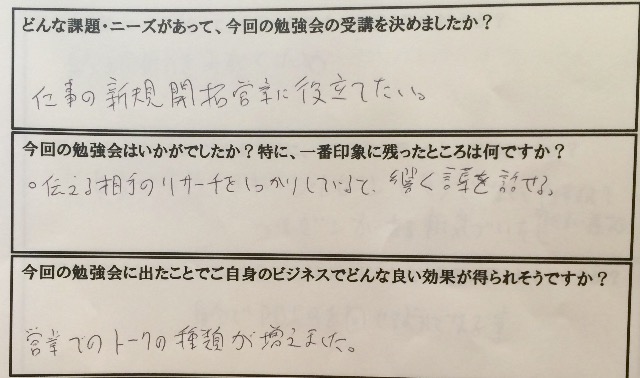 どんな課題・ニーズがあって、今回の勉強会の受講を決めましたか？
仕事の新規開拓営業に役立てたい。
今回の勉強会はいかがでしたか？特に、一番印象に残ったところは何ですか？
○伝える相手のリサーチをしっかりしていると、響く言葉を話せる。
今回の勉強会に出たことでご自身のビジネスでどんな良い効果が得られそうですか？
営業でのトークの種類が増えました。